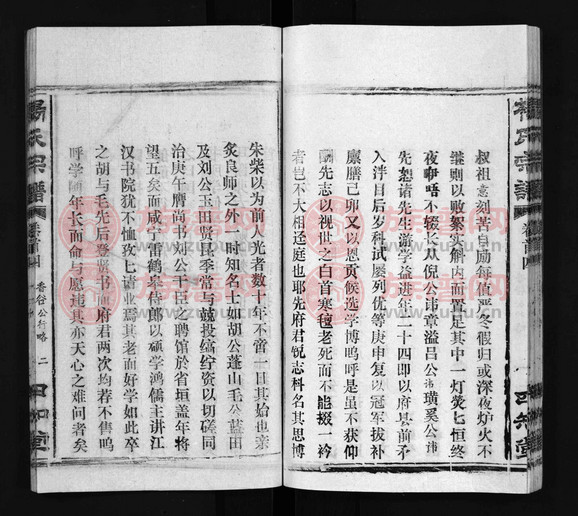 叔祖意刻苦自励每值严冬假归或深夜炉火不
继则以败絮实斛内而置足其中一灯荧七恒终
夜咿唔不辍长从倪公讳章溢吕公讳璜奚公讳
先恕诸先生游学益进年二十四即以府县前矛
入泮目后岁科试屡列优等庚申复以冠军拔补
廪膳己卯又以恩贡候选学博呜呼是虽不获仰
酬先志以视世之白首寒毡老死而不能掇一衿
者岂不大相迳庭也耶先府君锐志科名其思博
朱柴以为前人光者数十年不啻一日其始也亲
炙良师之外一时知名士如胡公蓬山毛公蓝田
及刘公玉田贤昆季常与兢投缟纻资以切磋同
治庚午膺尚书刘公干臣之聘馆於省垣盖年将
望五矣而咸宁雷鹤皋侍郎以硕学鸿儒主讲江
汉书院犹不恤孜七请业焉其老而好学如此卒
之胡与毛先后登贤书而府君两次均荐不售呜
呼学随年长而命与愿违其亦天心之难问者矣
杨氏宗谱
卷首四
香谷公行略
二
四知堂